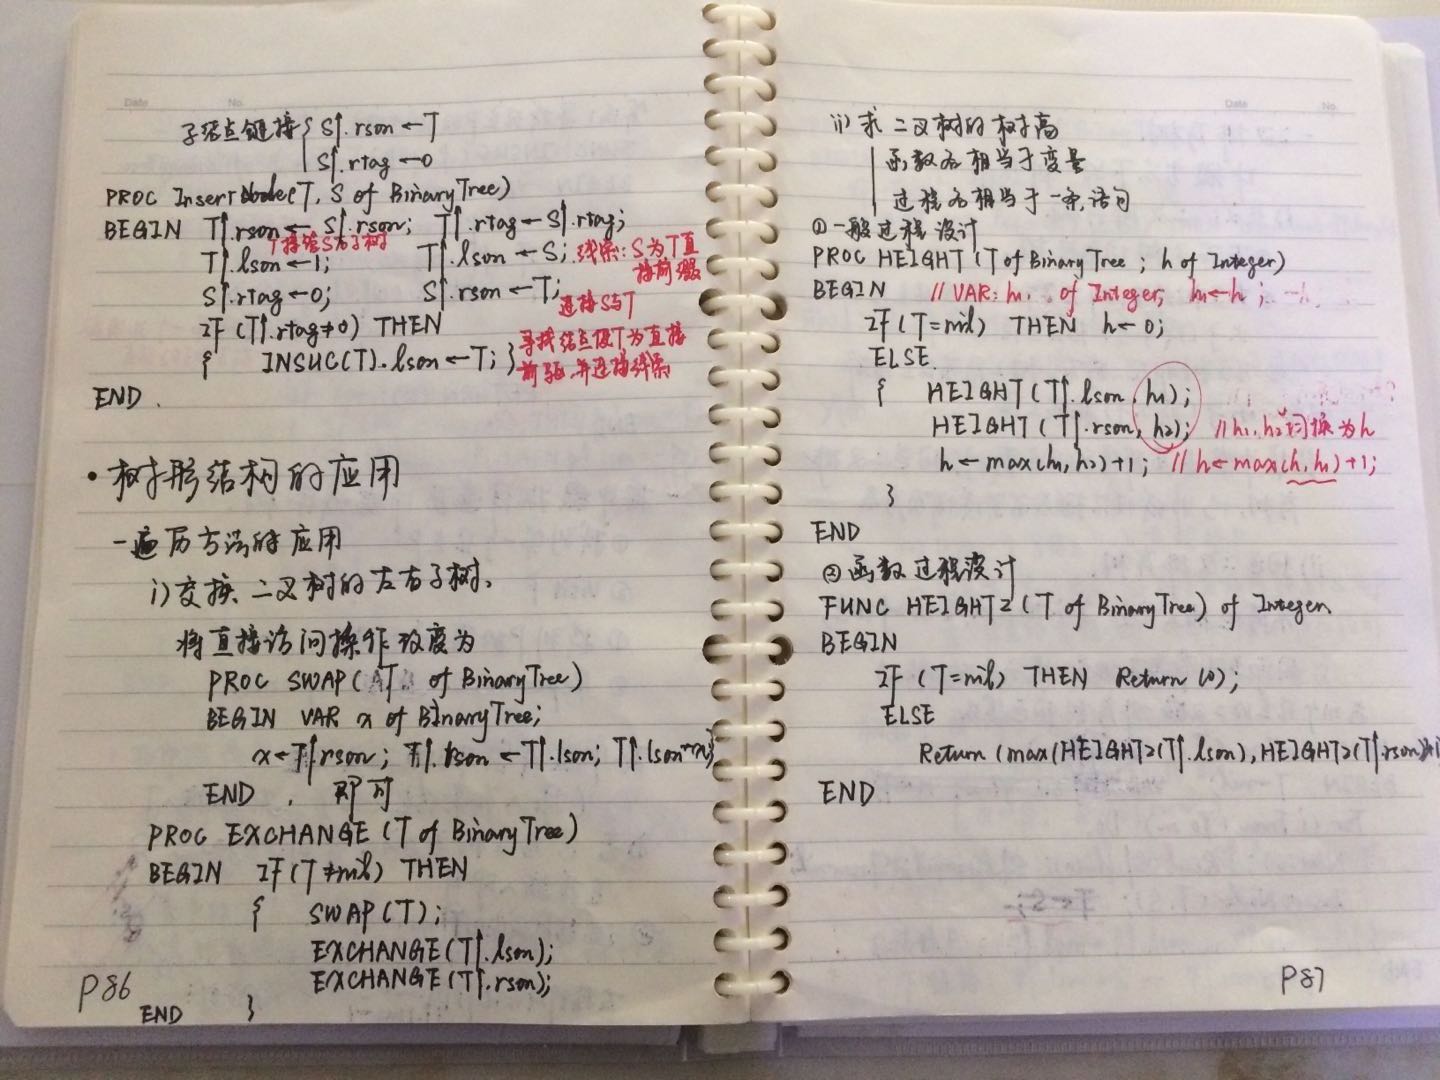 Date No.
子结点链接{ S↑.rson←T
S↑.rtag←0
PROC InsertNode(T, S of BinaryTree)
BEGIN T↑.rson←S↑.rson; T↑.rtag←S↑.rtag;
T接管S右子树
T↑.lson←1; T↑.lson←S; 线索:S为T直
接前
S↑.rtag←0; S↑.rson←T;
连接S与T
IF (T↑.rtag≠0) THEN
{ INSUC(T).lson←T; }
寻找结点使T为直接
前驱,并连接线索
END.
·树形结构的应用
一遍历方法的应用
i)交换二叉树的左右子树.
将直接访问操作改变为
PROC SWAP( T of BinaryTree)
BEGIN VAR x of BInaryTree;
x←T↑rson; T↑.rson←T↑.lson; T↑.lson←x;
END . 即可
PROC EXCHANGE (T of BinaryTree)
BEGIN IF(T≠nil) THEN
{ SWAP(T);
EXCHANGE(T↑.lson);
EXCHANGE(T↑.rson);
END }
P86
Date No.
ii)求二叉树的树高
函数名相当于变量
过程名相当于一条语句
①一般过程设计
PROC HEIGHT (T of BinaryTree ; h of Integer)
BEGIN // VAR: h₁ of Integer; h₁←h ;
IF(T=nil) THEN h←0;
ELSE
{ HEIGHT(T↑.lson, h₁);
HEIGHT(T↑.rson, h₂); //h₁,h₂均换为h
h←max(h₁,h₂)+1; //h←max(h,h₁)+1;
}
END
②函数过程设计
FUNC HEIGHT2(T of BinaryTree) of Integer
BEGIN
IF (T=nil) THEN Return (0);
ELSE
Return (max(HEIGHT2(T↑.lson),HEIGHT2(T↑.rson))+1
END
P87